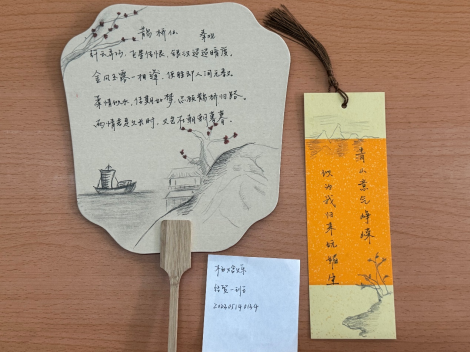 鹊桥仙 秦观
纤云弄巧，飞星传恨，银汉迢迢暗度。
金风玉露一相逢，便胜却人间无数
柔情似水，佳期如梦，忍顾鹊桥归路。
两情若是久长时，又岂在朝朝暮暮。
青山意气峥嵘
似为我归来妩媚生